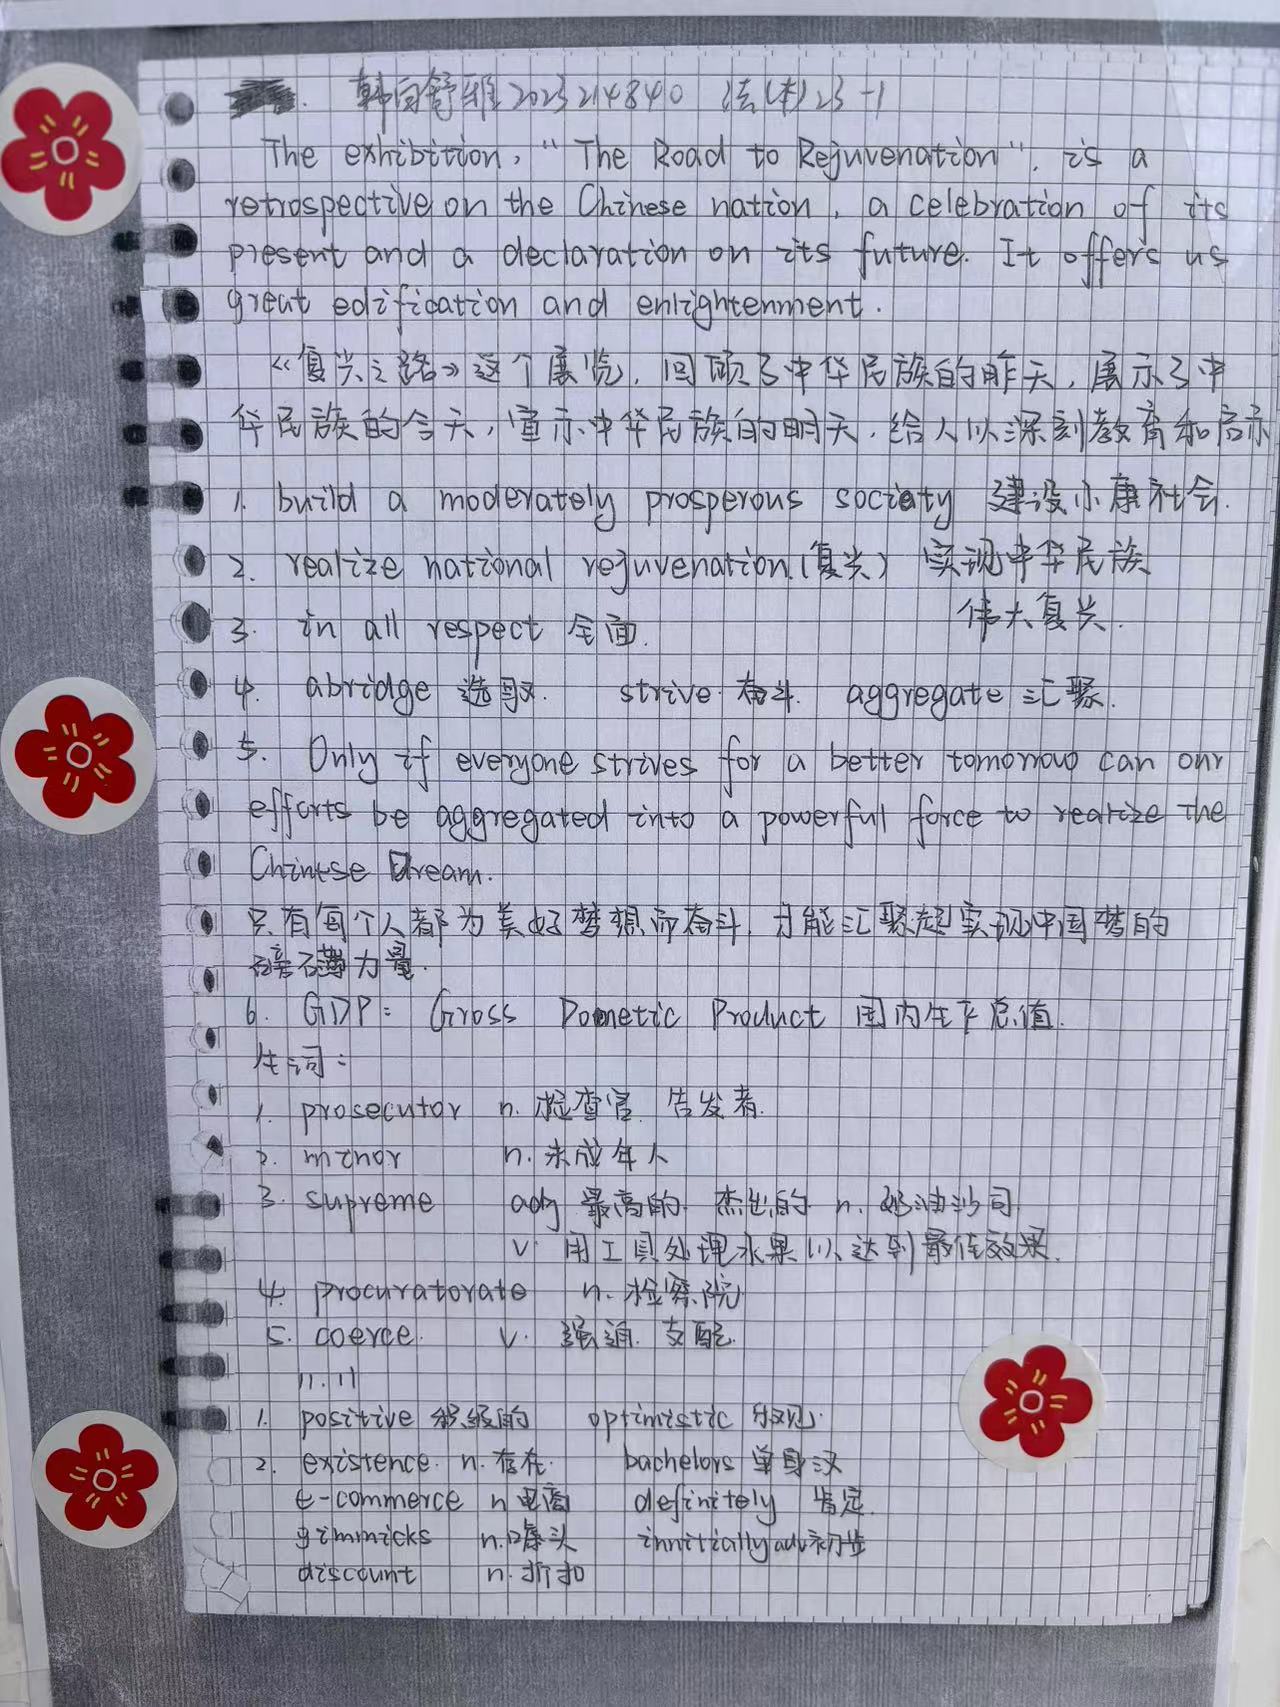 韩向舒雅 2023214840 法(本)23-1
The exhibition, "The Road to Rejuvenation", is a
retrospective on the Chinese nation, a celebration of its
present and a declaration on its future. It offers us
great edification and enlightenment.
《复兴之路》这个展览,回顾了中华民族的昨天,展示了中
华民族的今天,宣示中华民族的明天,给人以深刻教育和启示
1. build a moderately prosperous society 建设小康社会.
2. realize national rejuvenation(复兴) 实现中华民族
伟大复兴.
3. in all respect 全面.
4. abridge 选取. strive 奋斗. aggregate 汇聚.
5. Only if everyone strives for a better tomorrow can our
efforts be aggregated into a powerful force to realize the
Chinese Dream.
只有每个人都为美好梦想而奋斗,才能汇聚起实现中国梦的
磅礴力量.
6. GDP: Gross Dometic Product 国内生产总值.
生词:
1. prosecutor n. 检查官 告发者.
2. minor n. 未成年人
3. supreme adj 最高的. 杰出的 n. 奶油沙司
v. 用工具处理水果以达到最佳效果.
4. procuratorate n. 检察院
5. coerce. v. 强迫. 支配.
11.11
1. positive 积极的 optimistic 乐观.
2. existence. n. 存在. bachelors 单身汉
e-commerce n 电商 definitely 肯定.
gimmicks n. 噱头 innitially adv 初步
discount n. 折扣